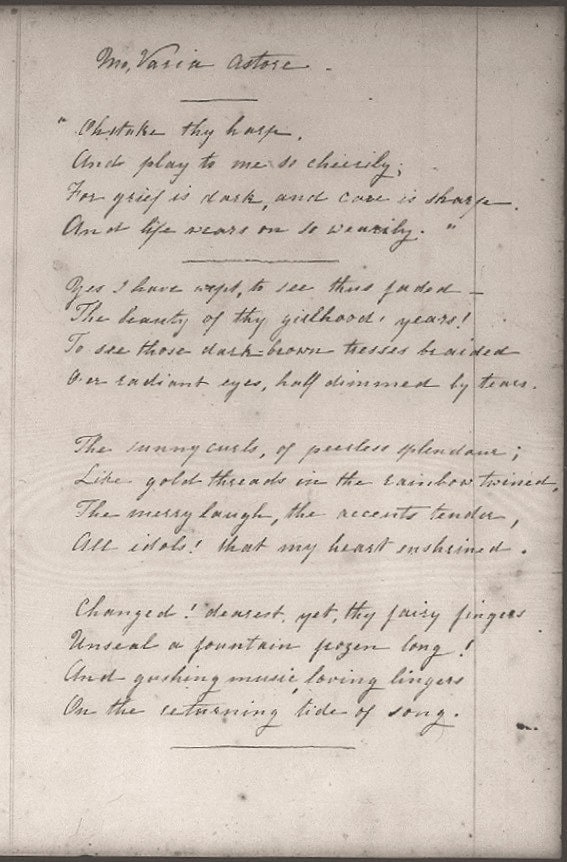 Mo, Varia Astore.
" Oh, take thy harp,
And play to me so cheerily;
For grief is dark, and care is sharp.
And life wears on so wearily. "
Yes I have wept, to see thus faded —
The beauty of thy girlhood' years!
To see those dark=brown tresses braided
O'er radiant eyes, half dimmed by tears.
The sunny curls, of peerless splendour;
Like gold threads in the rainbow twined,
The merry laugh, the accents tender,
All idols! that my heart enshrined.
Changed! dearest, yet, thy fairy fingers
Unseal a fountain frozen long!
And gushing music, loving lingers
On the returning tide of song.